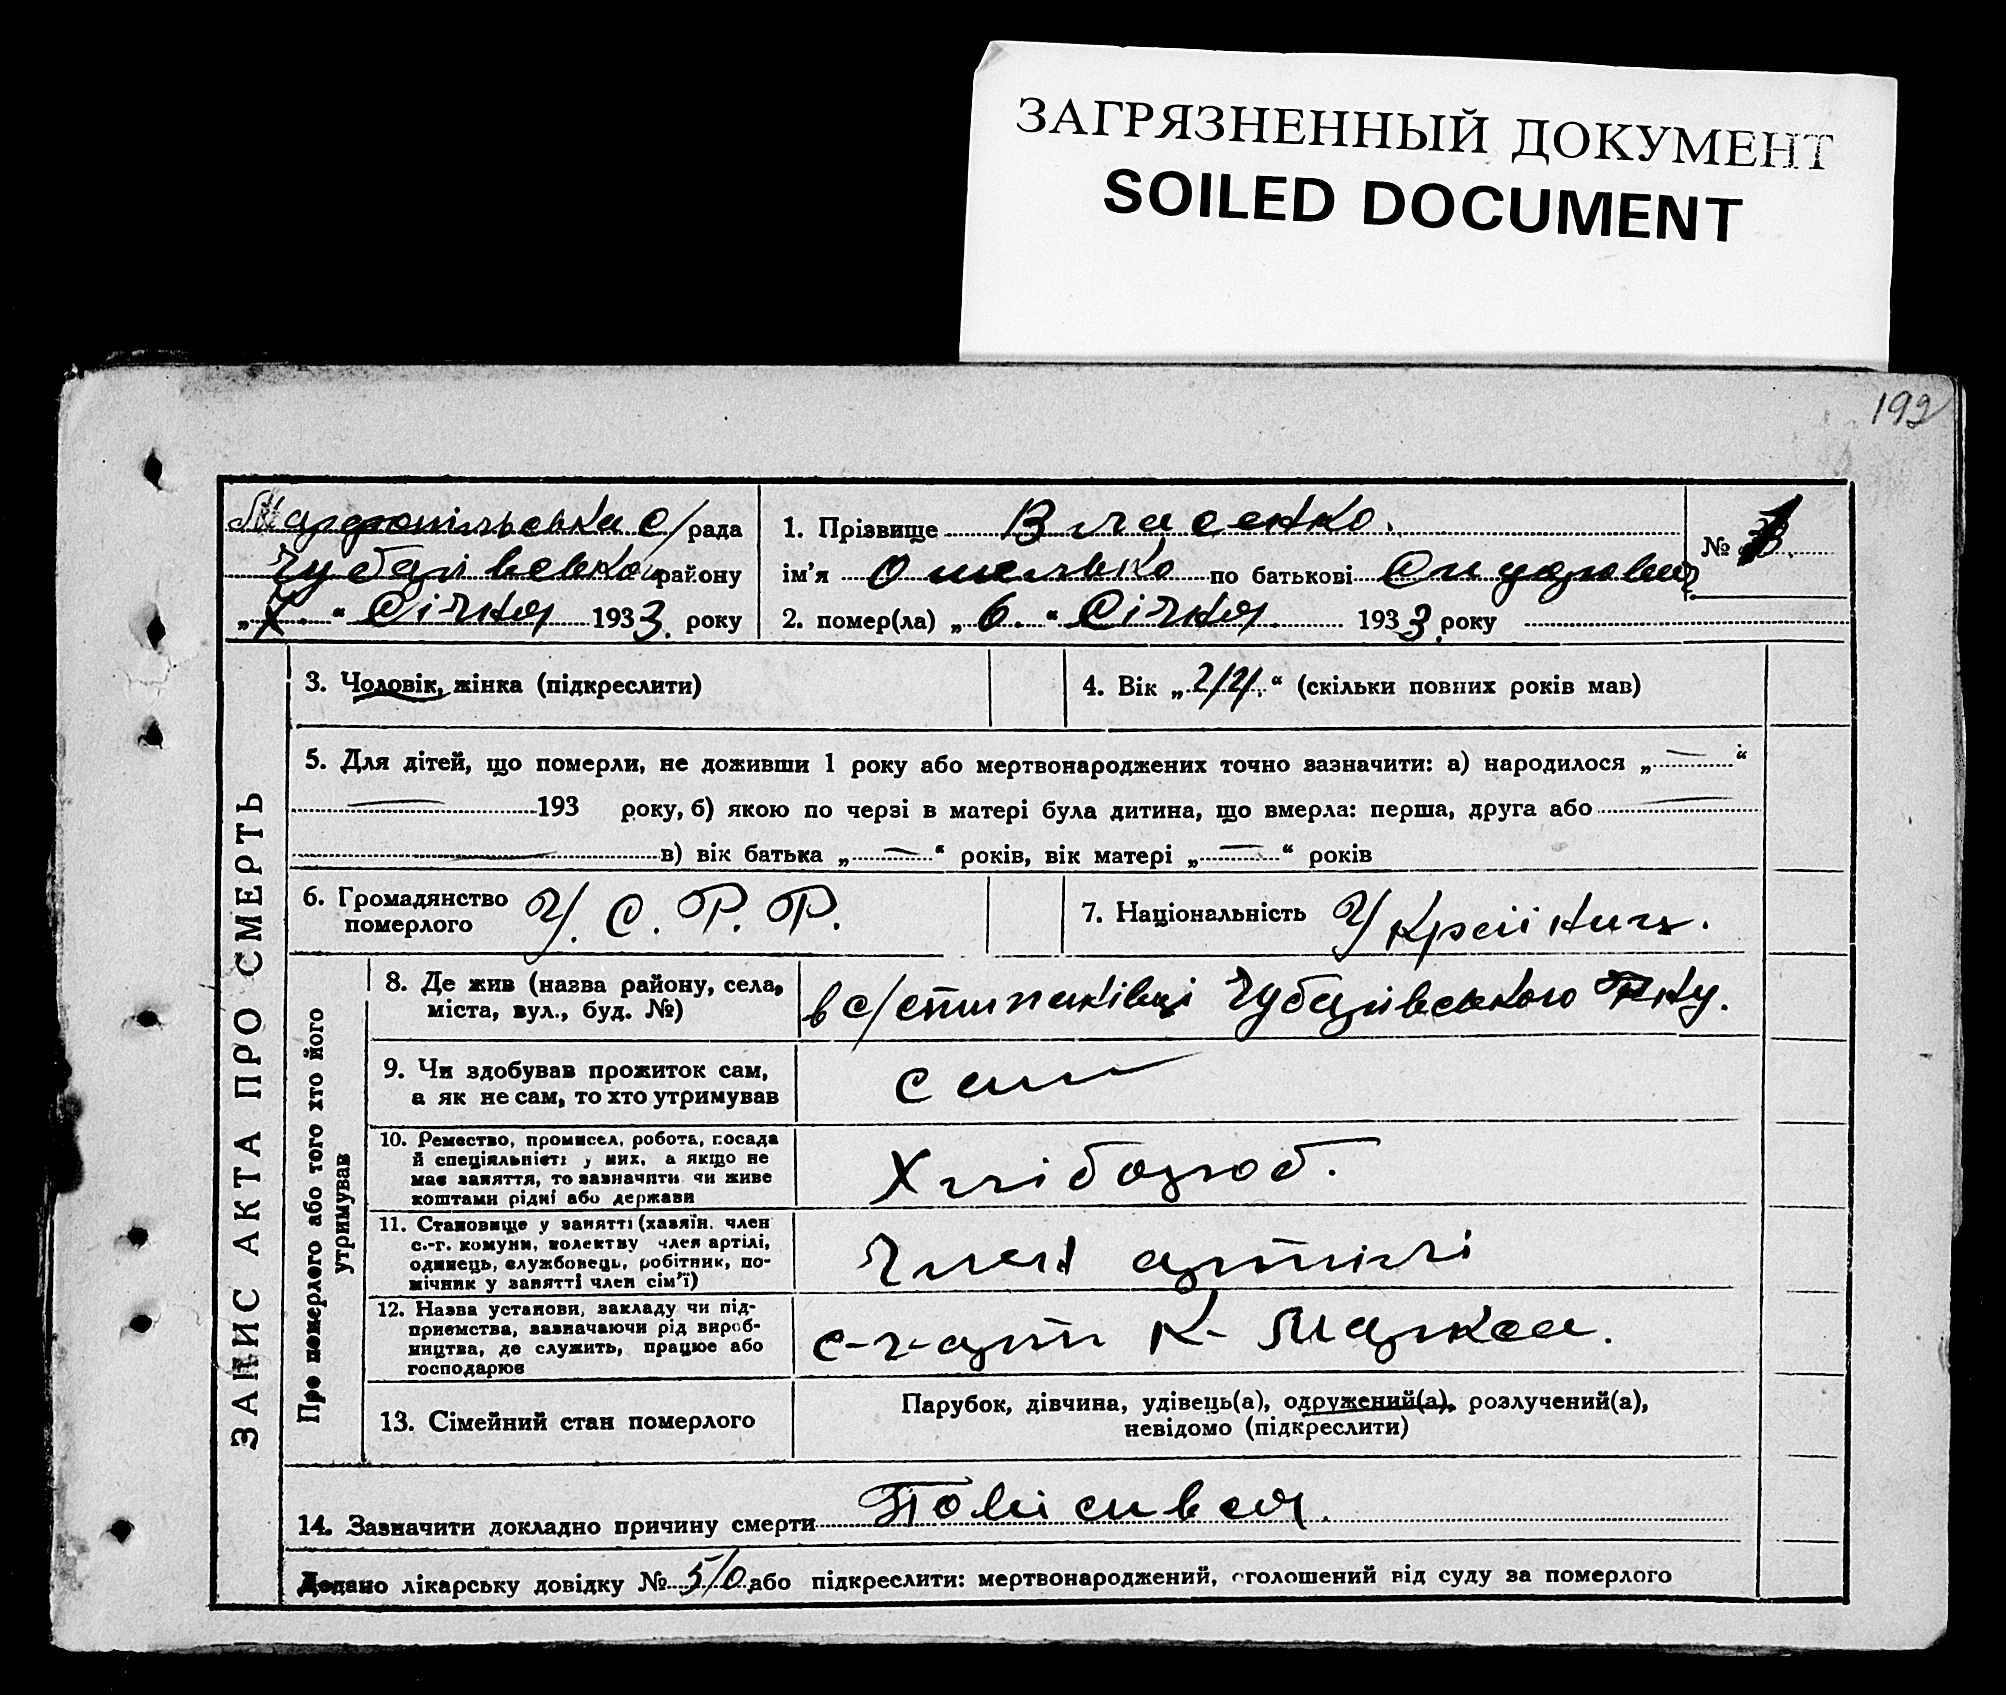 ЗАГРЯЗНЕННЫЙ ДОКУМЕНТ
SOILED DOCUMENT
192
с/рада
Чубарівського району
„ “ Січня 1933. року
1. Прізвище Власенко.
ім'я Омелько по батькові
№
2. помер(ла) „6.“ Січня. 1933. року
ЗАПИС АКТА ПРО СМЕРТЬ
3. Чоловік, жінка (підкреслити)
4. Вік „ “ (скільки повних років мав)
5. Для дітей, що померли, не доживши 1 року або мертвонароджених точно зазначити: а) народилося „—“
— 193 року, б) якою по черзі в матері була дитина, що вмерла: перша, друга або —
— в) вік батька „—“ років, вік матері „—“ років
6. Громадянство
померлого
У. С. Р. Р.
7. Національність Україниц.
Про померлого або того хто його
утримував
8. Де жив (назва району, села,
міста, вул., буд. №)
в с/ Чубарівського Р-ну.
9. Чи здобував прожиток сам,
а як не сам, то хто утримував
сам
10. Ремество, промисел, робота, посада
й спеціяльність у них, а якщо не
має заняття, то зазначити чи живе
коштами рідні або держави
Хлібороб.
11. Становище у занятті (хазяїн, член
с.-г. комуни, колективу член артілі,
одинець, службовець, робітник, по-
мічник у занятті член сім'ї)
Член артілі
12. Назва установи, закладу чи під-
приємства, зазначаючи рід вироб-
ництва, де служить, працює або
господарює
с-г-арт К- Маркса.
13. Сімейний стан померлого
Парубок, дівчина, удівець(а), одружений(а), розлучений(а),
невідомо (підкреслити)
14. Зазначити докладно причину смерти
Додано лікарську довідку № 5/0 або підкреслити: мертвонароджений, оголошений від суду за померлого